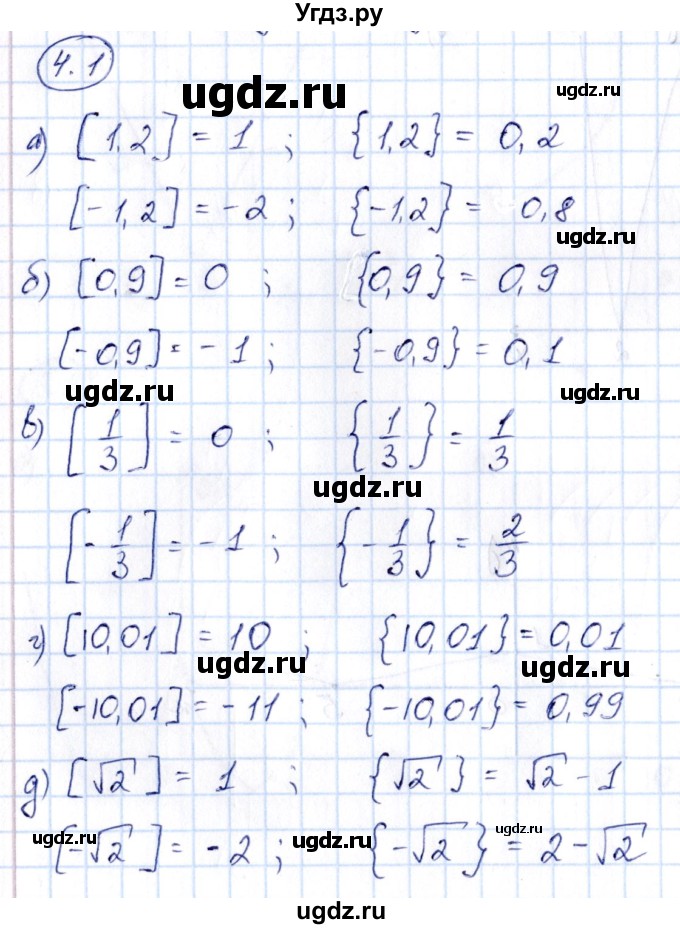 Угдз.ру
4.1
ugdz.ru
ugdz.ru
а) [1,2] = 1 ; {1,2} = 0,2
[-1,2] = -2 ; {-1,2} = 0,8
ugdz.ru
б) [0,9] = 0 ; {0,9} = 0,9
[-0,9] = -1 ; {-0,9} = 0,1
ugdz.ru
ugdz.ru
в) [1/3] = 0 ; {1/3} = 1/3
ugdz.ru
[-1/3] = -1 ; {-1/3} = 2/3
г) [10,01] = 10 ; {10,01} = 0,01
ugdz.ru
ugdz.ru
[-10,01] = -11 ; {-10,01} = 0,99
д) [√2] = 1 ; {√2} = √2 - 1
ugdz.ru
ugdz.ru
ugdz.ru
[-√2] = -2 ; {-√2} = 2 - √2
ugdz.ru
ugdz.ru